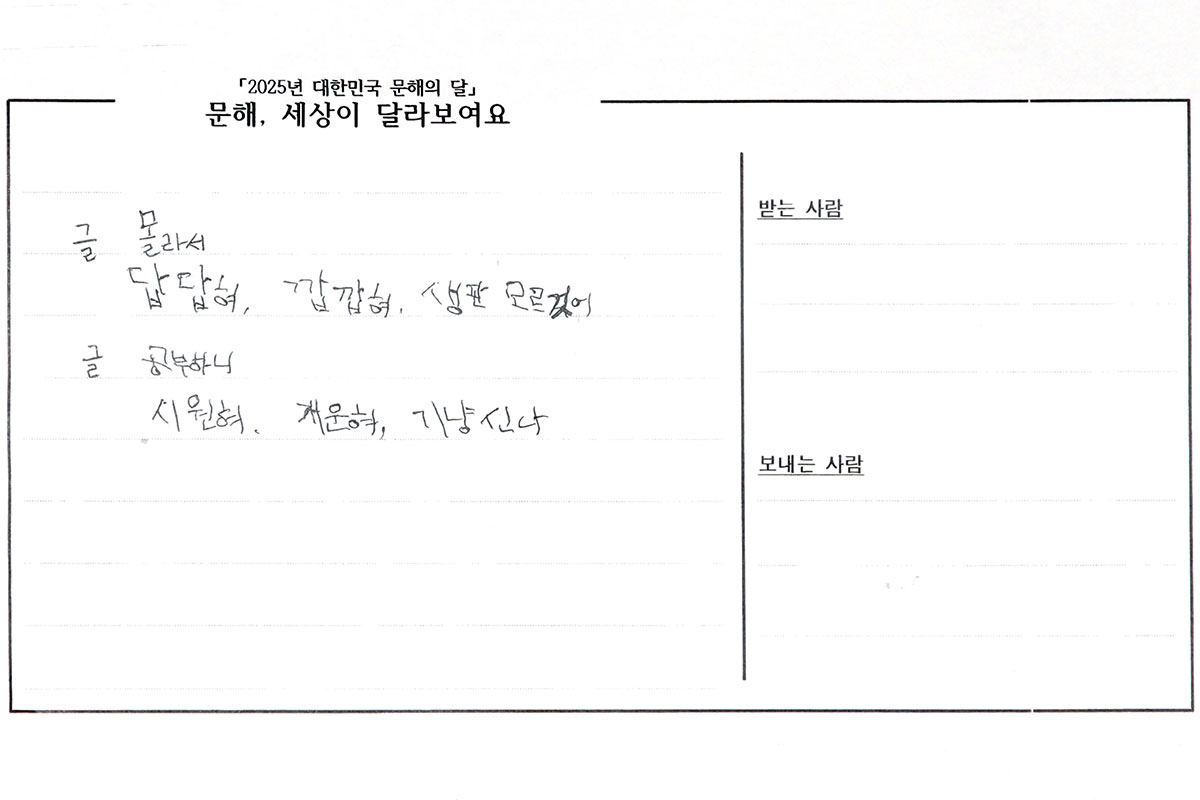 「2025년 대한민국 문해의 달」
문해, 세상이 달라보여요
글 몰라서
답답혀, 깝깝혀. 생판 모르겄어
글 공부하니
시원혀. 개운혀, 기냥 신나
받는 사람
보내는 사람